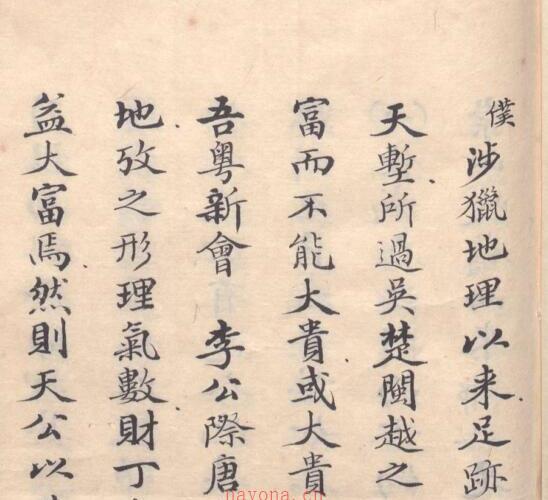 僕涉獵地理以来足跡
天塹所過吳楚閩越之
富而不能大貴或大貴
吾粵新會 李公際唐
地攷之形理氣數財丁
益大富焉然則天公以
nayona.cn